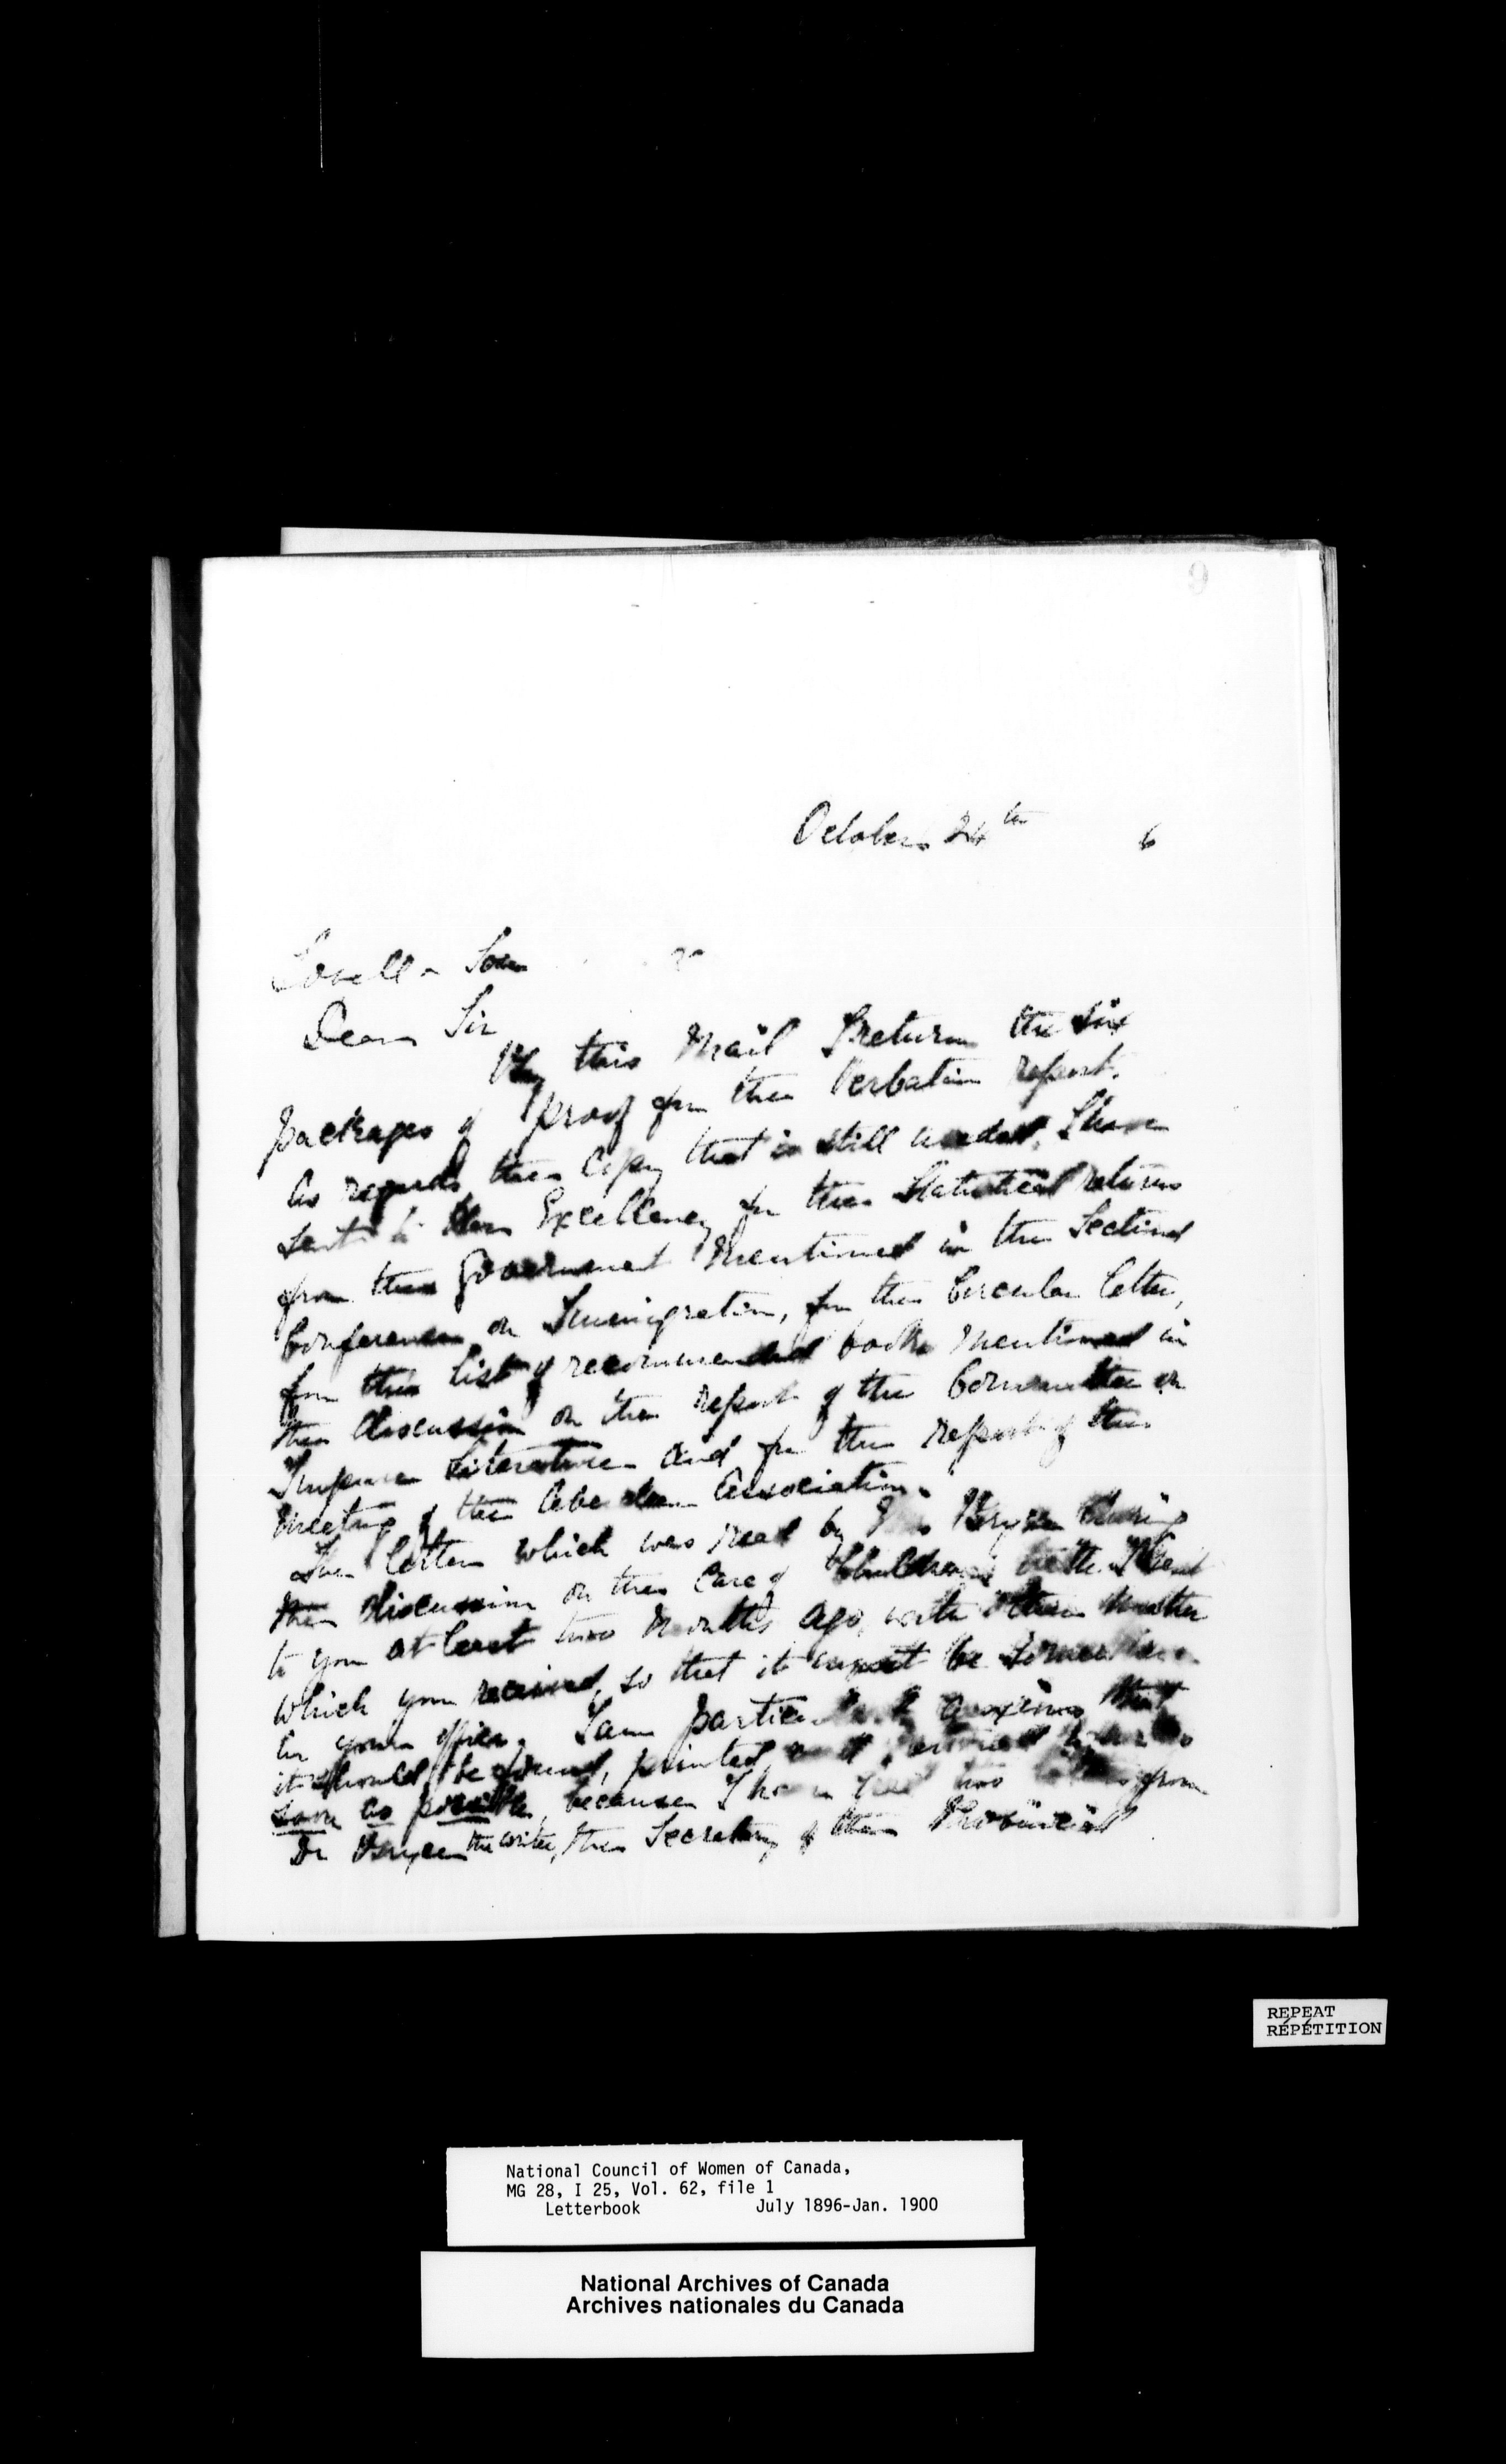 9
October 24th 6
Lovell & Son
Dear Sir
By this Mail I return the six
packages of proof for the Verbatim report.
As regards the Copy that is still needed, I have
sent to Her Excellency for the Statistical returns
from the Government mentioned in the Sectional
Conference on Immigration, for the Circular letter,
for the list of recommended books mentioned in
the discussion on the report of the Committee on
Impure Literature and for the report of the
meeting of the Aberdeen Association.
The letter which was read by during
the discussion on the Care of Children
to you at least two months ago, with
which you received, so that it must be somewhere
in your office. I am particularly anxious that
it should be found, printed, and
soon as possible, because I have had two letters from
Dr the writer, the Secretary of the Provincial
REPEAT
RÉPÉTITION
National Council of Women of Canada,
MG 28, I 25, Vol. 62, file 1
Letterbook July 1896-Jan. 1900
National Archives of Canada
Archives nationales du Canada